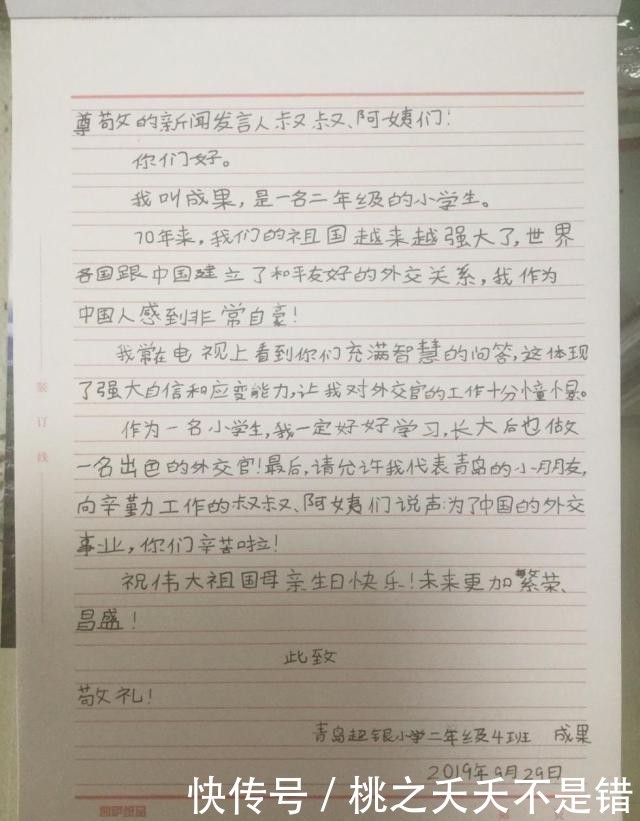 尊敬的新闻发言人叔叔、阿姨们！
你们好。
我叫成果，是一名二年级的小学生。
70年来，我们的祖国越来越强大了，世界
各国跟中国建立了和平友好的外交关系，我作为
中国人感到非常自豪！
我常在电视上看到你们充满智慧的问答，这体现
了强大自信和应变能力，让我对外交官的工作十分憧憬。
作为一名小学生，我一定好好学习，长大后也做
一名出色的外交官！最后，请允许我代表青岛的小朋友，
向辛勤工作的叔叔、阿姨们说声：为了中国的外交
事业，你们辛苦啦！
祝伟大祖国母亲生日快乐！未来更加繁荣、
昌盛！
此致
敬礼！
青岛超银小学二年级4班 成果
2019年9月29日
装订线
快传号 / 桃之夭夭不是错